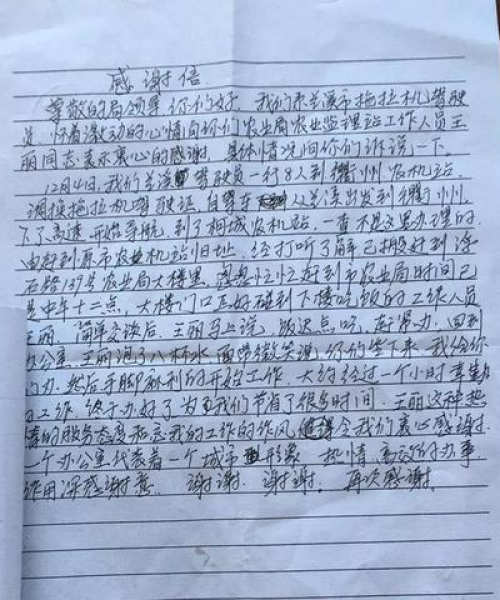 感谢信
尊敬的局领导你们好，我们来兰溪市拖拉机驾驶
员，怀着激动的心情向你们农业局农业监理站工作人员王
丽同志表示衷心的感谢，具体情况向你们诉说一下。
12月4日，我们兰溪驾驶员一行8人到衢州农机站
调换拖拉机驾驶证，自驾车从兰溪出发到衢州，
下了高速，开始导航，到了柯城农机站，一查不是这里办理的
由赶到原市农业机站旧址，经打听了解已搬好到
石路137号农业局大楼里，急急忙忙赶到市农业局时间已
是中午十二点，大楼门口正好碰到下楼吃饭的工作人员
王丽，简单交谈后，王丽马上说，饭迟点吃，赶紧办，回到
办公室，王丽泡了八杯水，面带微笑说你们坐下来，我给你
们办，然后手脚麻利的开始工作，大约经过一个小时辛勤
的工作，终于办好了，为我们节省了很多时间，王丽这种热
情的服务态度和忘我的工作的作风值得令我们衷心感谢，
一个办公室代表着一个城市形象，热情，高效的办事
作用深感谢意。谢谢。谢谢。再次感谢。